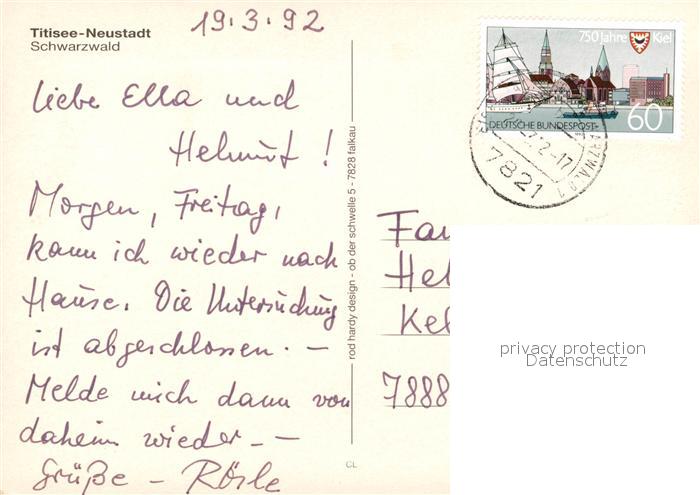 19.3.92
Titisee-Neustadt
Schwarzwald
liebe Ella und
Helmut!
Morgen, Freitag,
kann ich wieder nach
Hause. Die Untersuchung
ist abgeschlossen. —
Melde mich dann von
daheim wieder. — —
Grüße — Rösle
rod hardy design - ob der schwelle 5 - 7828 falkau
CL
750 Jahre Kiel
DEUTSCHE BUNDESPOST
60
7821
Fam
Hel
Kel
7888
privacy protection
Datenschutz